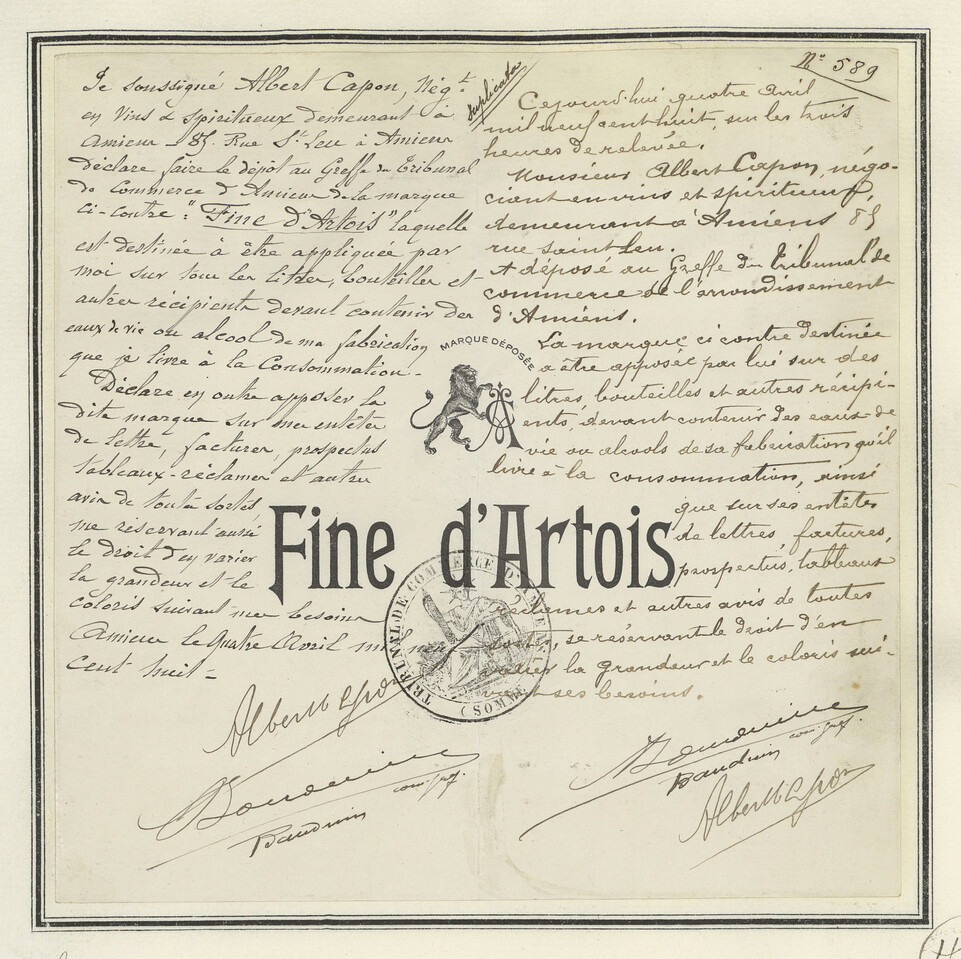 Je soussigné Albert Capon, Négt
en Vins & Spiritueux demeurant à
Amiens _ 85. Rue St Leu à Amiens
déclare faire le dépôt au Greffe du Tribunal
de Commerce d'Amiens de la marque
ci-contre "Fine d'Artois" laquelle
est destinée à être appliquée par
moi sur tous les litres, bouteilles et
autres récipients devant contenir des
eaux de vie ou alcool de ma fabrication
que je livre à la Consommation -
Déclare en outre apposer la
dite marque sur mes entêtes
de lettre, factures, prospectus
tableaux-réclames et autres
avis de toute sortes,
me réservant aussi
le droit d'en varier
la grandeur et le
coloris suivant mes besoins
Amiens le quatre Avril mil neuf
cent huit -
Albert Capon
Baudouin
duplicata
No 589
Cejourd'hui quatre avril
mil neuf cent huit, sur les trois
heures de relevée.
Monsieur Albert Capon, négo-
ciant en vins et spiritueux,
demeurant à Amiens 85
rue Saint Leu.
A déposé au Greffe du Tribunal de
commerce de l'arrondissement
d'Amiens.
La marque ci contre destinée
a être apposée par lui sur des
litres, bouteilles et autres récipi-
ents, devant contenir des eaux-de
vie ou alcools de sa fabrication qu'il
livre à la consommation, ainsi
que sur ses entêtes
de lettres, factures,
prospectus, tableaux
réclames et autres avis de toutes
sortes, se réservant le droit d'en
varier la grandeur et le coloris sui-
vant ses besoins.
Albert Capon
MARQUE DÉPOSÉE
Fine d'Artois
TRIBUNAL DE COMMERCE D'AMIENS
(SOMME)